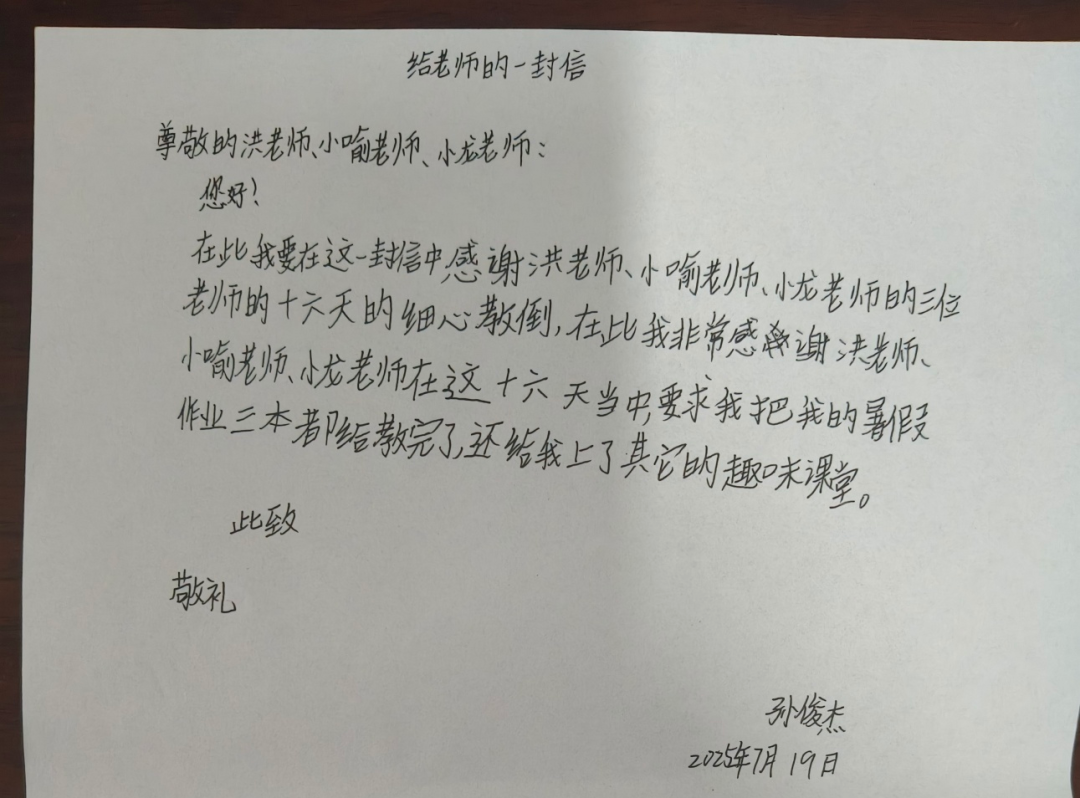 给老师的一封信
尊敬的洪老师、小喻老师、小龙老师：
您好！
在此我要在这一封信中感谢洪老师、小喻老师、小龙老师的三位
老师的十六天的细心教倒，在此我非常感谢洪老师、
小喻老师、小龙老师在这十六天当中，要求我把我的暑假
作业三本都给教完了，还给我上了其它的趣味课堂。
此致
敬礼
孙俊杰
2025年7月19日